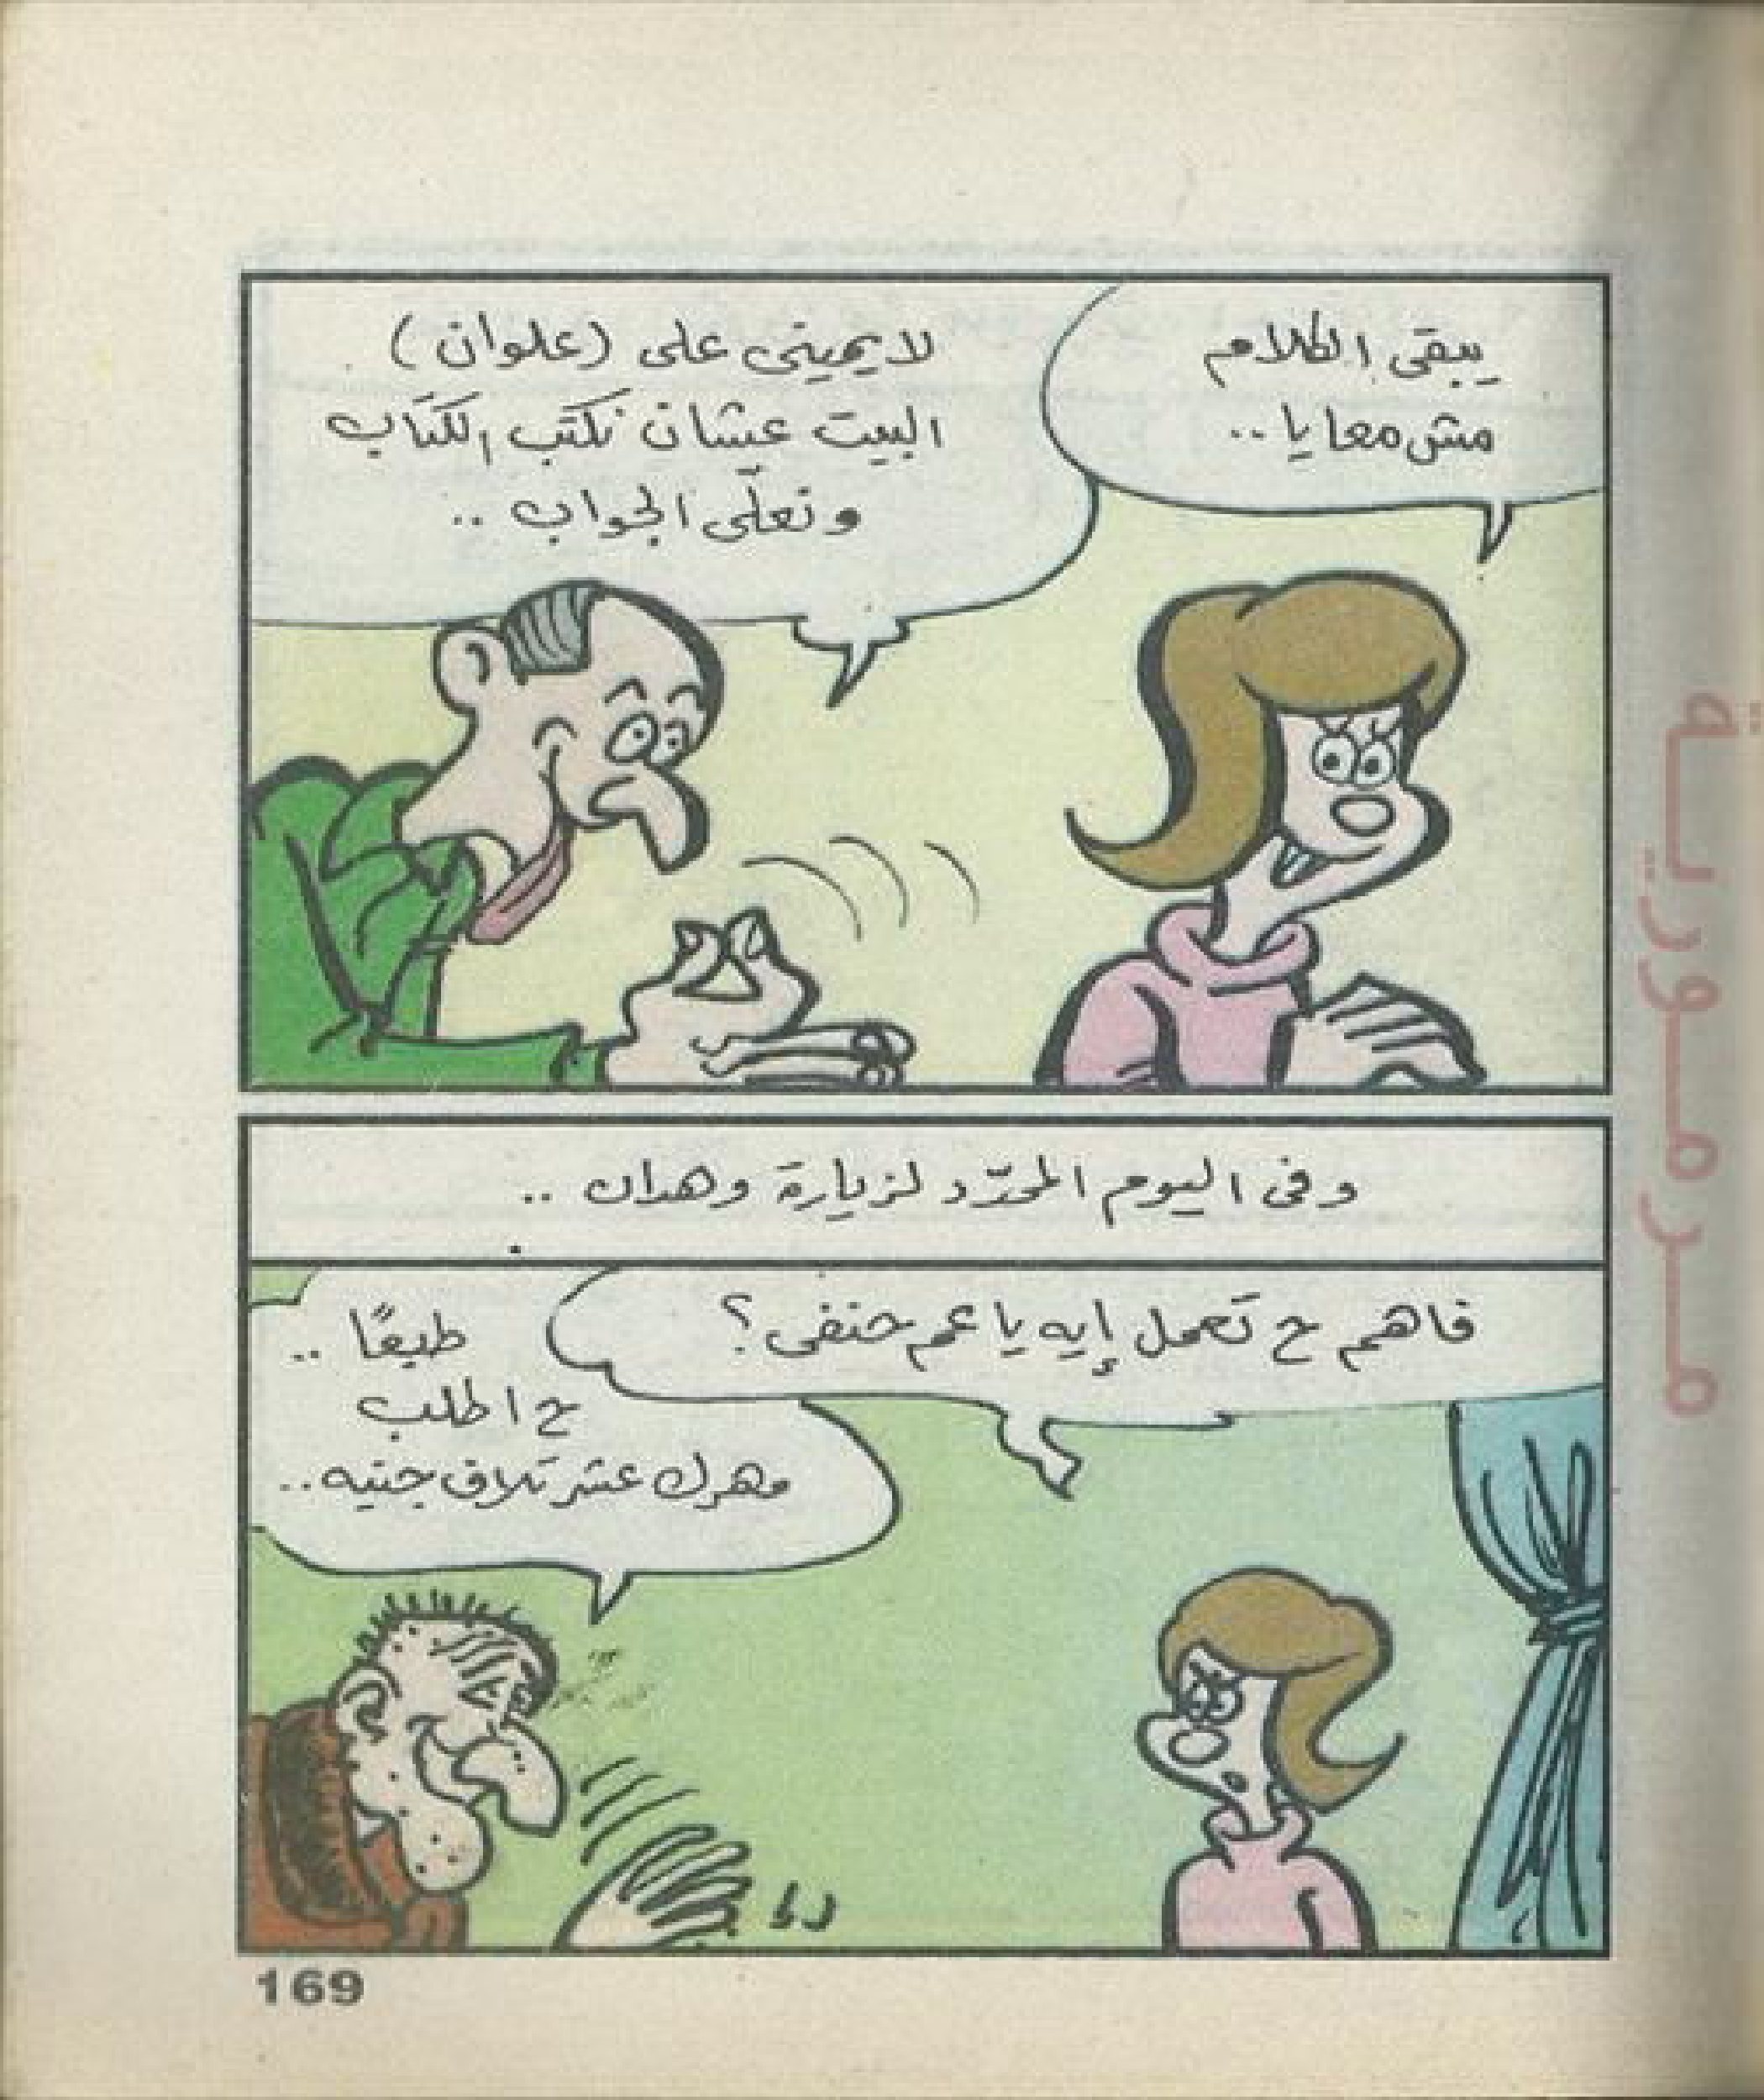 يبقى الكلام
مش معايا ..
لايمينى على (علوان)
البيت عشان نكتب الكتاب
ونعلّى الجواب ..
وفى اليوم المحدّد لزيارة وهدان ..
فاهم ح تعمل إيه يا عم حنفى؟
طبعًا ..
ح اطلب
مهرك عشر تلاف جنيه ..
169